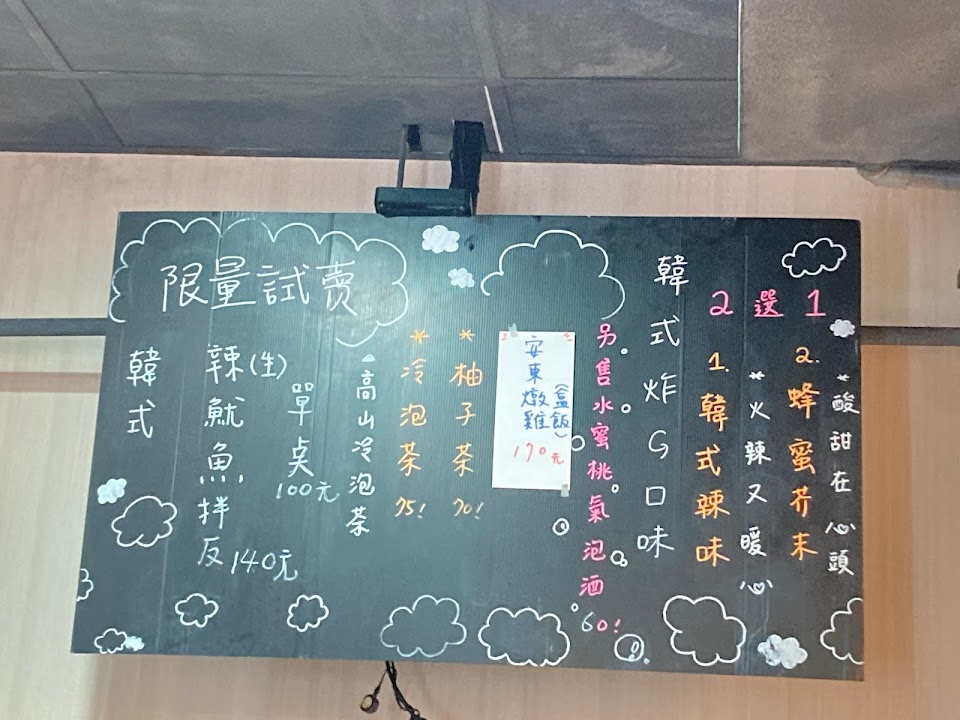 限量試賣
韓式
辣(生)魷魚拌反 140元
單點 100元
高山冷泡茶
*冷泡茶 75!
*柚子茶 70!
安東燉雞
(盒飯)
170元
另售水蜜桃氣泡酒 60!
韓式炸G口味
2選1
1. 韓式辣味
*火辣又暖心
2. 蜂蜜芥末
*酸甜在心頭